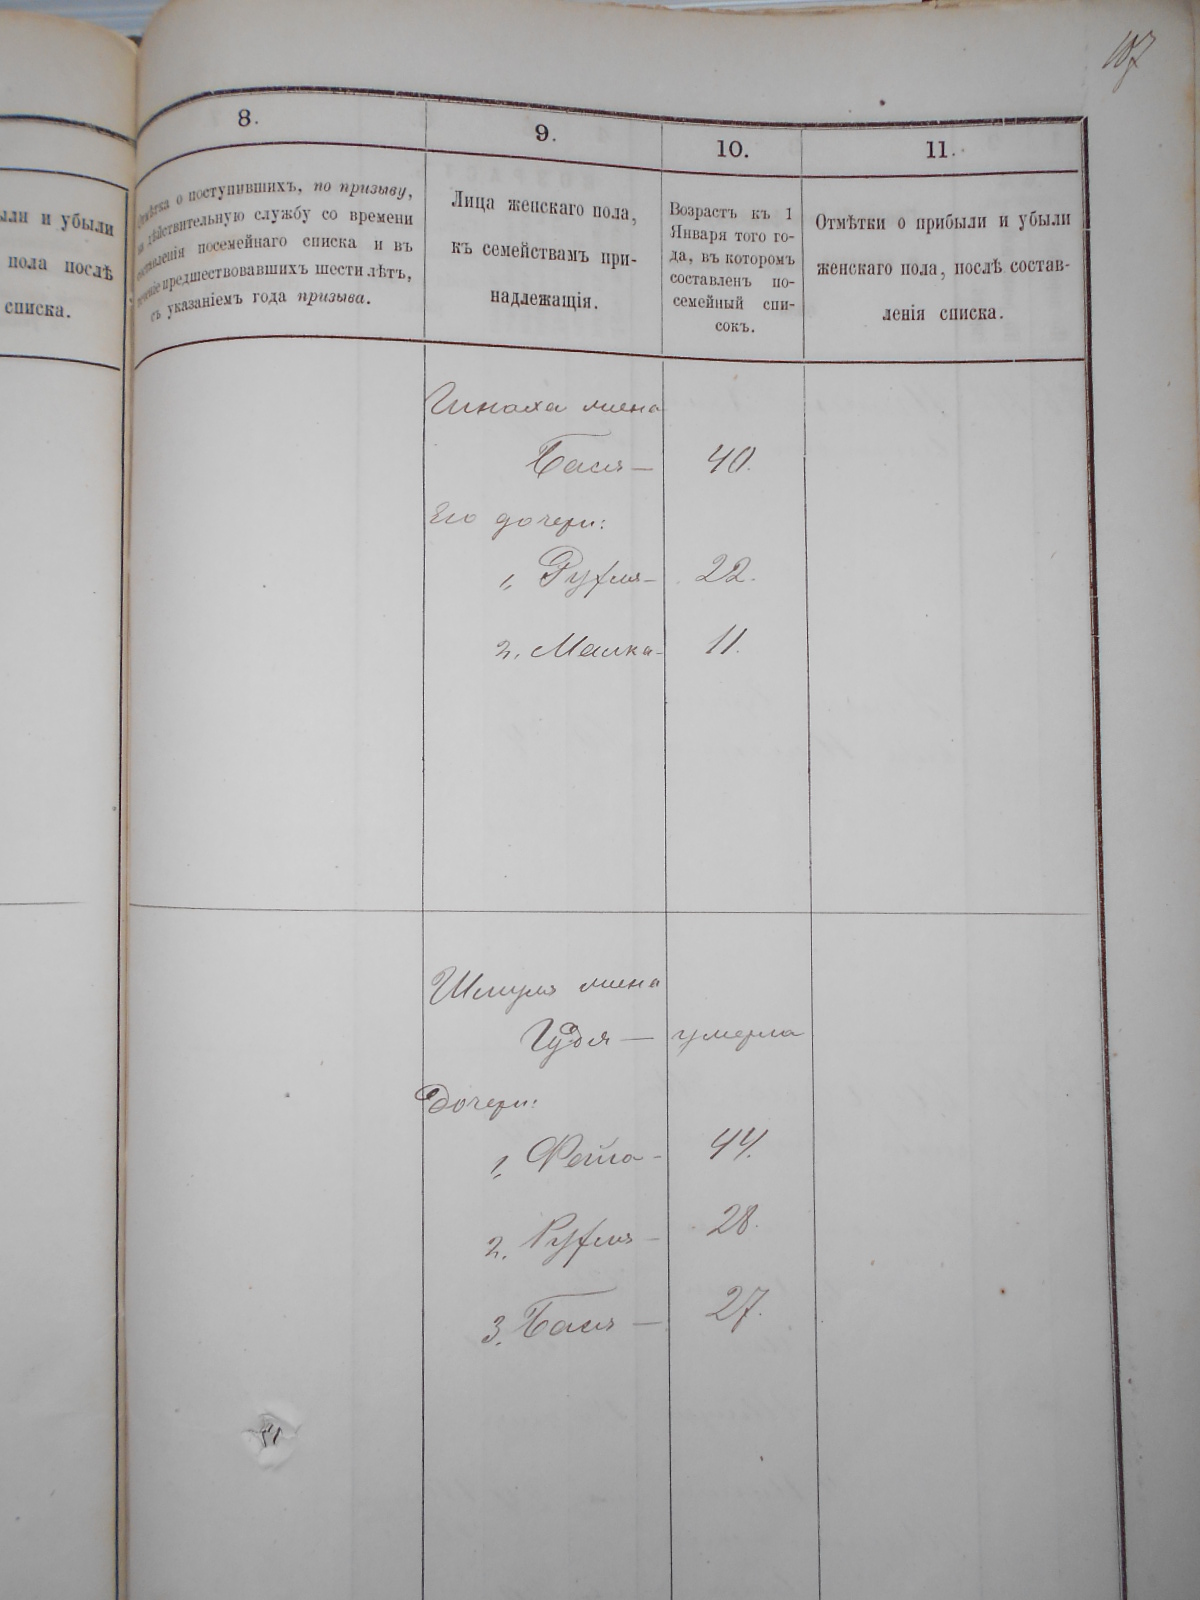 107
ыли и убыли
пола послѣ
списка.
8.
9.
10.
11.
о поступившихъ, по призыву,
дѣйствительную службу со времени
составленія посемейнаго списка и въ
теченіе предшествовавшихъ шести лѣтъ,
съ указаніемъ года призыва.
Лица женскаго пола,
къ семействамъ при-
надлежащія.
Возрастъ къ 1
Января того го-
да, въ которомъ
составленъ по-
семейный спи-
сокъ.
Отмѣтки о прибыли и убыли
женскаго пола, послѣ состав-
ленія списка.
жена
Бася — 40.
Его дочери:
1, Рухля — 22.
2, Малка - 11.
Шмуля жена
Гудя — умерла
Дочери:
1, Фейга - 44.
2. Рухля — 28.
3. Бася — 27.